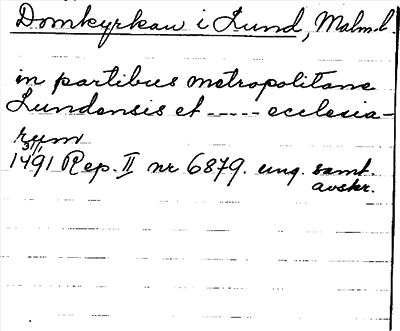 Domkyrkan i Lund, Malm.l.
in partibus metropolitane
Lundensis et ----- ecclesia-
rum
31/1
1491 Rep. II nr 6879. ung. samt.
avskr.